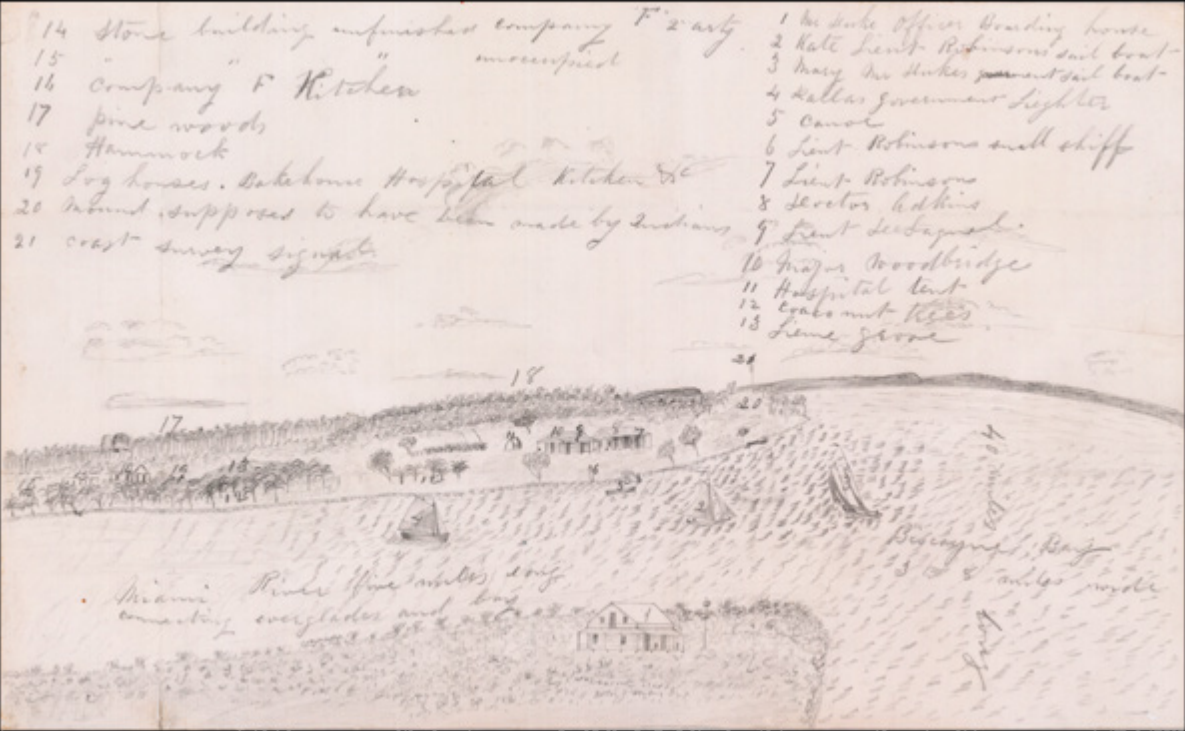 14 Stone building unfinished company "F" 2 arty
15 " " " unoccupied
16 company F Kitchen
17 pine woods
18 Hammock
19 Log houses. Bakehouse Hospital Kitchen &c
20 Mound supposed to have been made by Indians
21 coast survey signal
1 Mr Officer Boarding house
2 Kate Lieut Robinsons sail boat
3 Mary Mr sail boat
4 Dallas government Lieghter
5 Canoe
6 Lieut Robinsons small skiff
7 Lieut Robinsons
8 Doctor Adkins
9 Lieut
10 Major Woodbridge
11 Hospital tent
12 trees
13 Lime grove
21
18
20
17
40 miles long
Biscayne Bay
3 to 8 miles wide
Miami River five miles long
connecting everglades and bay